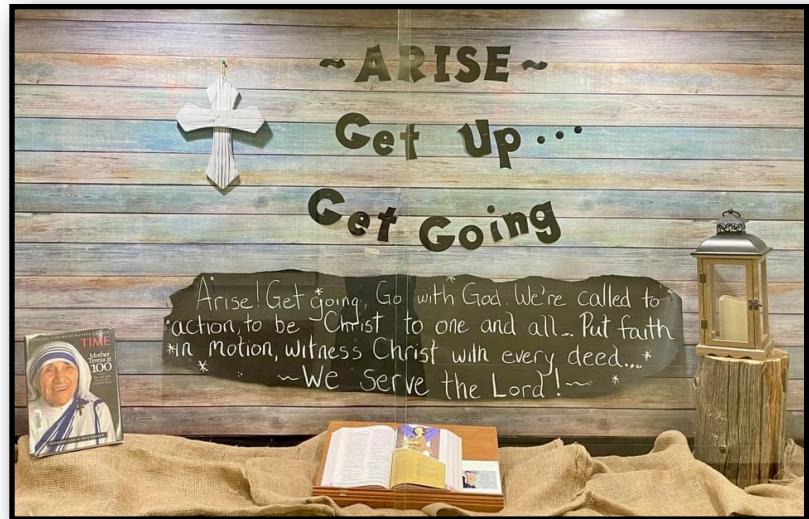 ~ARISE~
Get Up...
Get Going
Arise! Get going, Go with God. We're called to
action, to be Christ to one and all... Put faith
*in motion, witness Christ with every deed...*
* ~We Serve the Lord!~ *
TIME
Mother
Teresa at
100